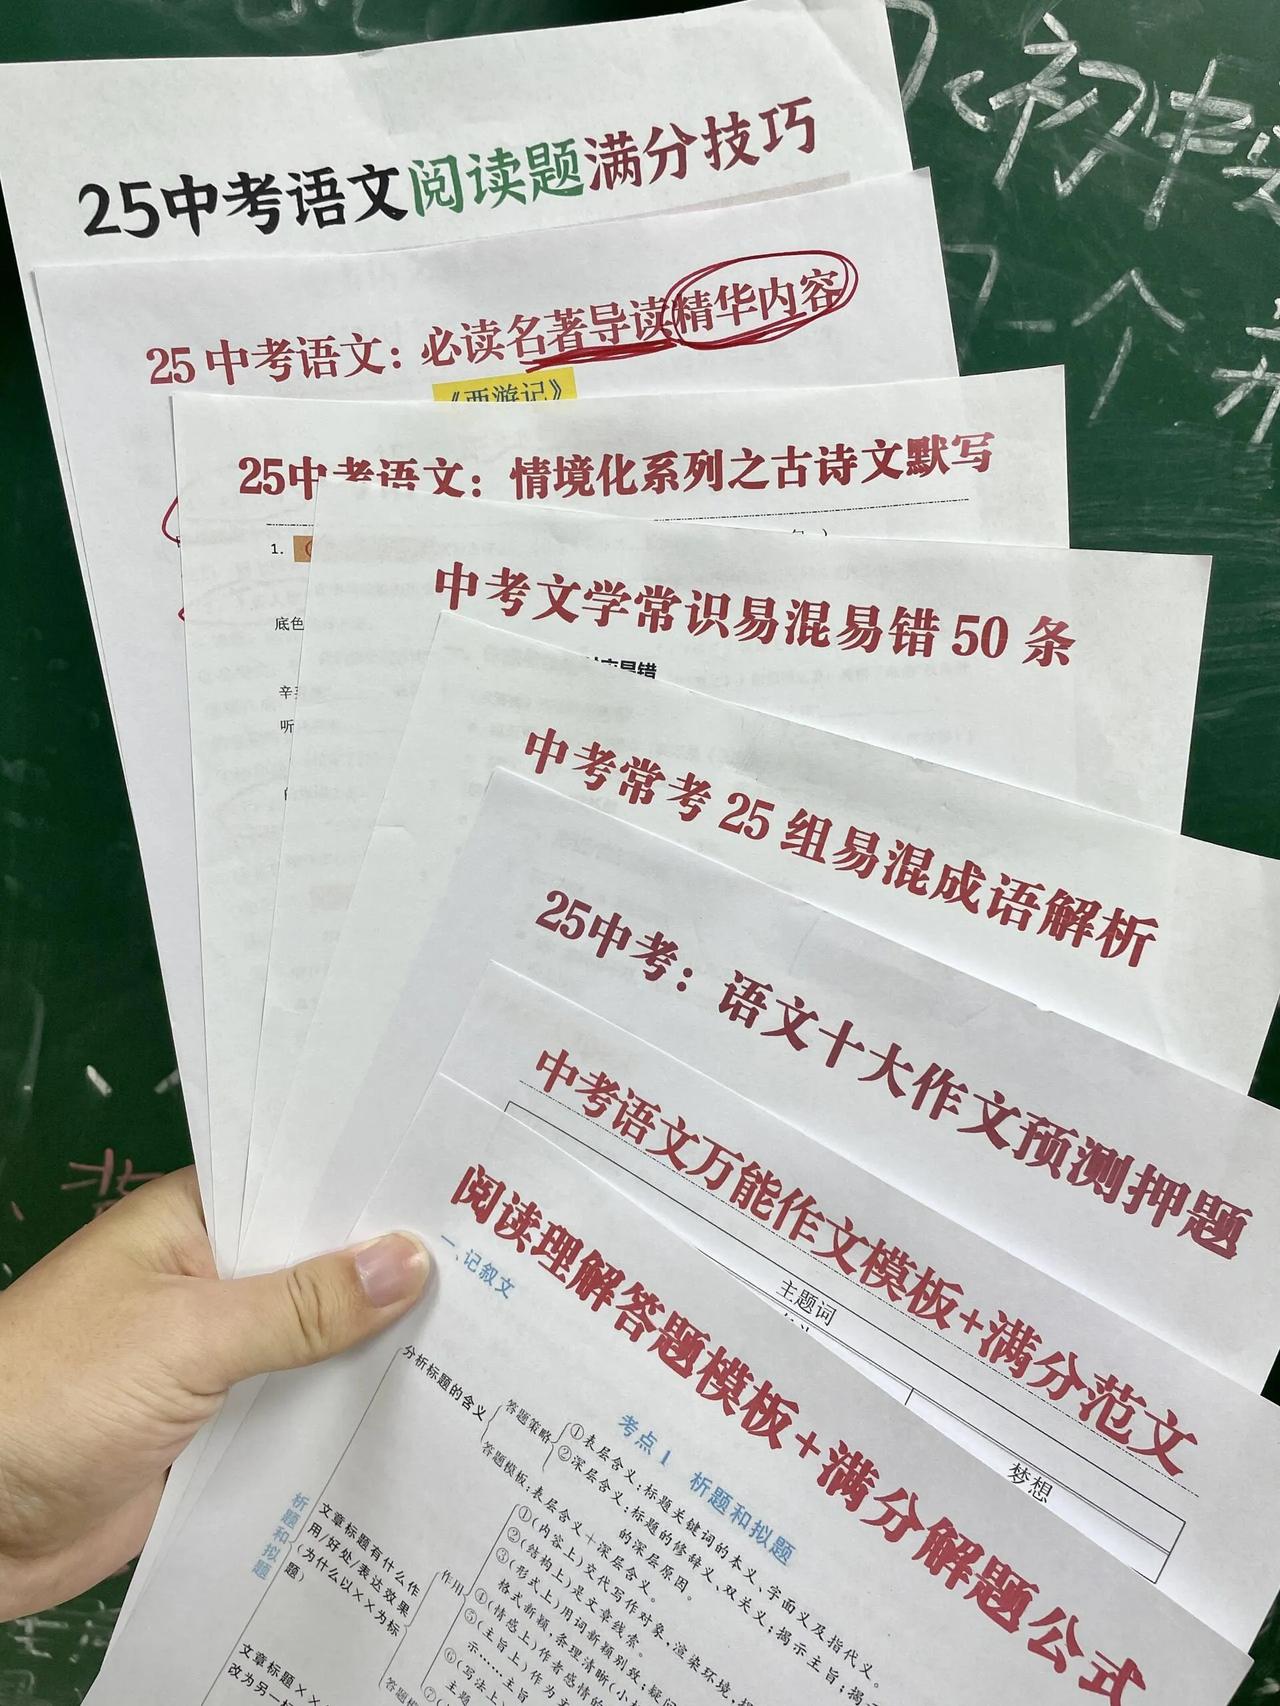 25中考语文阅读题满分技巧
25中考语文：必读名著导读精华内容
《西游记》
25中考语文：情境化系列之古诗文默写
1.
底色
听
中考文学常识易混易错50条
中考常考25组易混成语解析
25中考：语文十大作文预测押题
中考语文万能作文模板+满分范文
主题词
梦想
阅读理解答题模板+满分解题公式
一、记叙文
考点1 析题和拟题
析题和拟题
分析标题的含义
答题策略
①表层含义：标题关键词的本义、字面义及指代义。
②深层含义：标题的修辞义、双关义；揭示主旨；揭
的深层原因。
答题模板：表层含义+深层含义。
文章标题有什么作
用/好处/表达效果
（为什么以××为标
题）
作用
①（内容上）交代写作对象，渲染环境，
②（结构上）是文章线索。
③（形式上）用词新颖别致；疑问
格式新颖，条理清晰（小标
④（情感上）作者感情的
⑤（主旨上）作为
示……主旨
⑥（写法上）
主题
⑦（
答题模板
文章标题××
改为另一标
初中
个